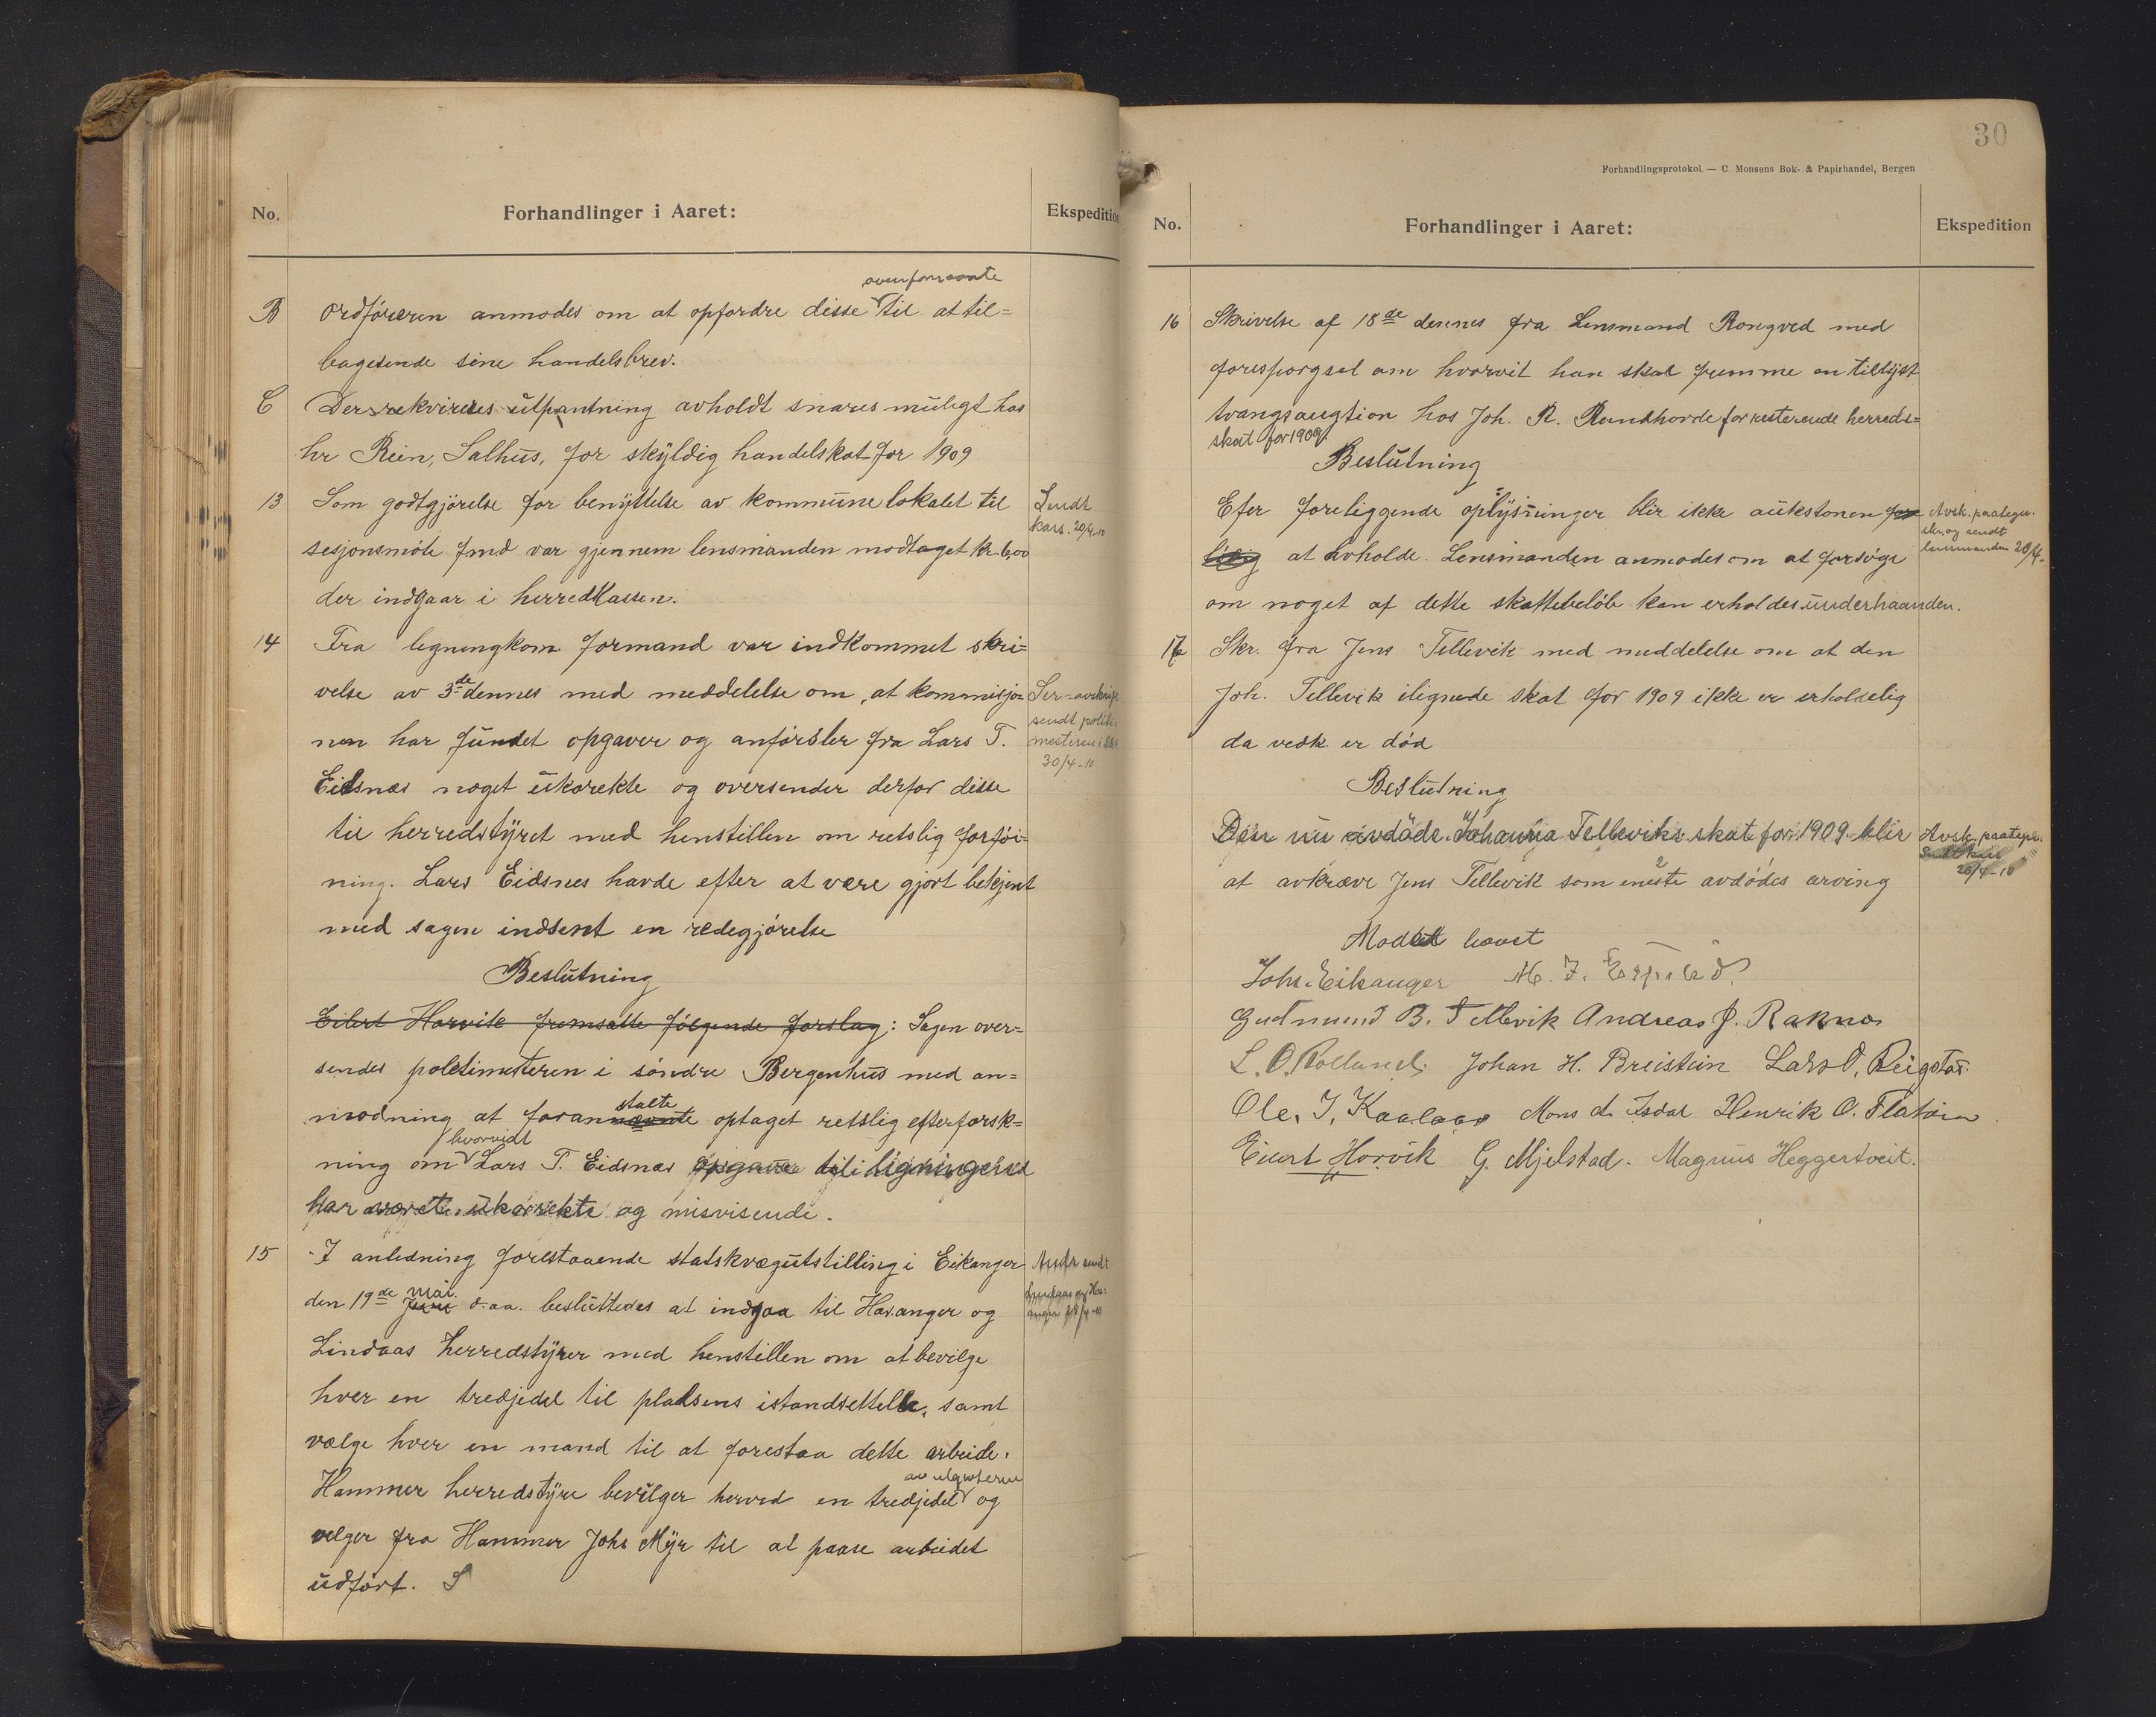 No.
Forhandlinger i Aaret:
Ekspedition
B Ordføreren anmodes om at opfordre disse til at til=
bagesende sine handelsbrev.
C Der rekvireres utpantning avholdt snares muligt hos
hr Rein, Salhus, for skyldig handelskat for 1909
13 Som godtgjørelse for benyttelse av kommunelokalet til
sesjonsmøte fmd var gjennem lensmanden modtaget kr.
der indgaar i herredkassen.
Sendt
kass. 20/4-10
14 Fra legningkom formand var indkommet skri=
velse av 3de dennes med meddelelse om, at kommisjo=
nen har fundet opgaver og anførsler fra Lars T.
Eidsnæs noget ukorekte og oversender derfor disse
til herredstyret med henstillen om retslig forføi=
ning. Lars Eidsnes havde efter at være gjort bekjent
med sagen indsent en redegjørelse
sendt politi=
mesteren i
30/4-10
Beslutning
Eilert Horvik fremsatte følgende forslag: Sagen over=
sendes poletimesteren i søndre Bergenhus med an=
modning at foranstalte optaget retslig efterforsk=
ning om hvorvidt Lars T. Eidsnæs opgave til ligningerne
har været ukorrekte og misvisende.
15 I anledning forestaaende statskvægutstilling i Eikanger
den 19de mai d.aa. besluttedes at indgaa til Hosanger og
Lindaas herredstyrer med henstillen om at bevilge
hver en tredjedel til pladsens istandsettelse, samt
vælge hver en mand til at forestaa dette arbeide.
Hammer herredstyre bevilger herved en tredjedel av utgifterne og
velger fra Hammer Johs Myr til at paase arbeidet
udført.
30
Forhandlingsprotokol. — C. Monsens Bok- & Papirhandel, Bergen
No.
Forhandlinger i Aaret:
Ekspedition
16 Skrivelse af 18de dennes fra Lensmand Rongved med
forespørgsel om hvorvit han skal fremme en tillyst
tvangsaugtion hos Joh. R. Randhorde for resterende herreds=
skat for 1909.
Beslutning
Efer foreliggende oplysninger blir ikke aukstonen
at avholde. Lensmanden anmodes om at forsøge
om noget af dette skattebeløb kan erholdes underhaanden.
Avsk. paategn.
og sendt
lensmanden 28/4-
17 Skr. fra Jens Tellevik med meddelelse om at den
Joh. Tellevik ilignede skat for 1909 ikke er erholdelig
da vedk. er død
Beslutning
Den nu avdøde Johanna Telleviks skat for 1909 blir
at avkræve Jens Tellevik som eneste avdødes arving
Avsk. paategn.
Sendt kass
28/4-10
Mødet hævet
Johs. Eikanger
Gudmund B. Tellevik Andreas J. Raknes
L. O. Rolland. Johan H. Breistein Lars O. Reigstad.
Ole. J. Kaalaas Mons d. Isdal Henrik O. Flatøen
Eilert Horvik G. Mjelstad. Magnus Heggertveit.